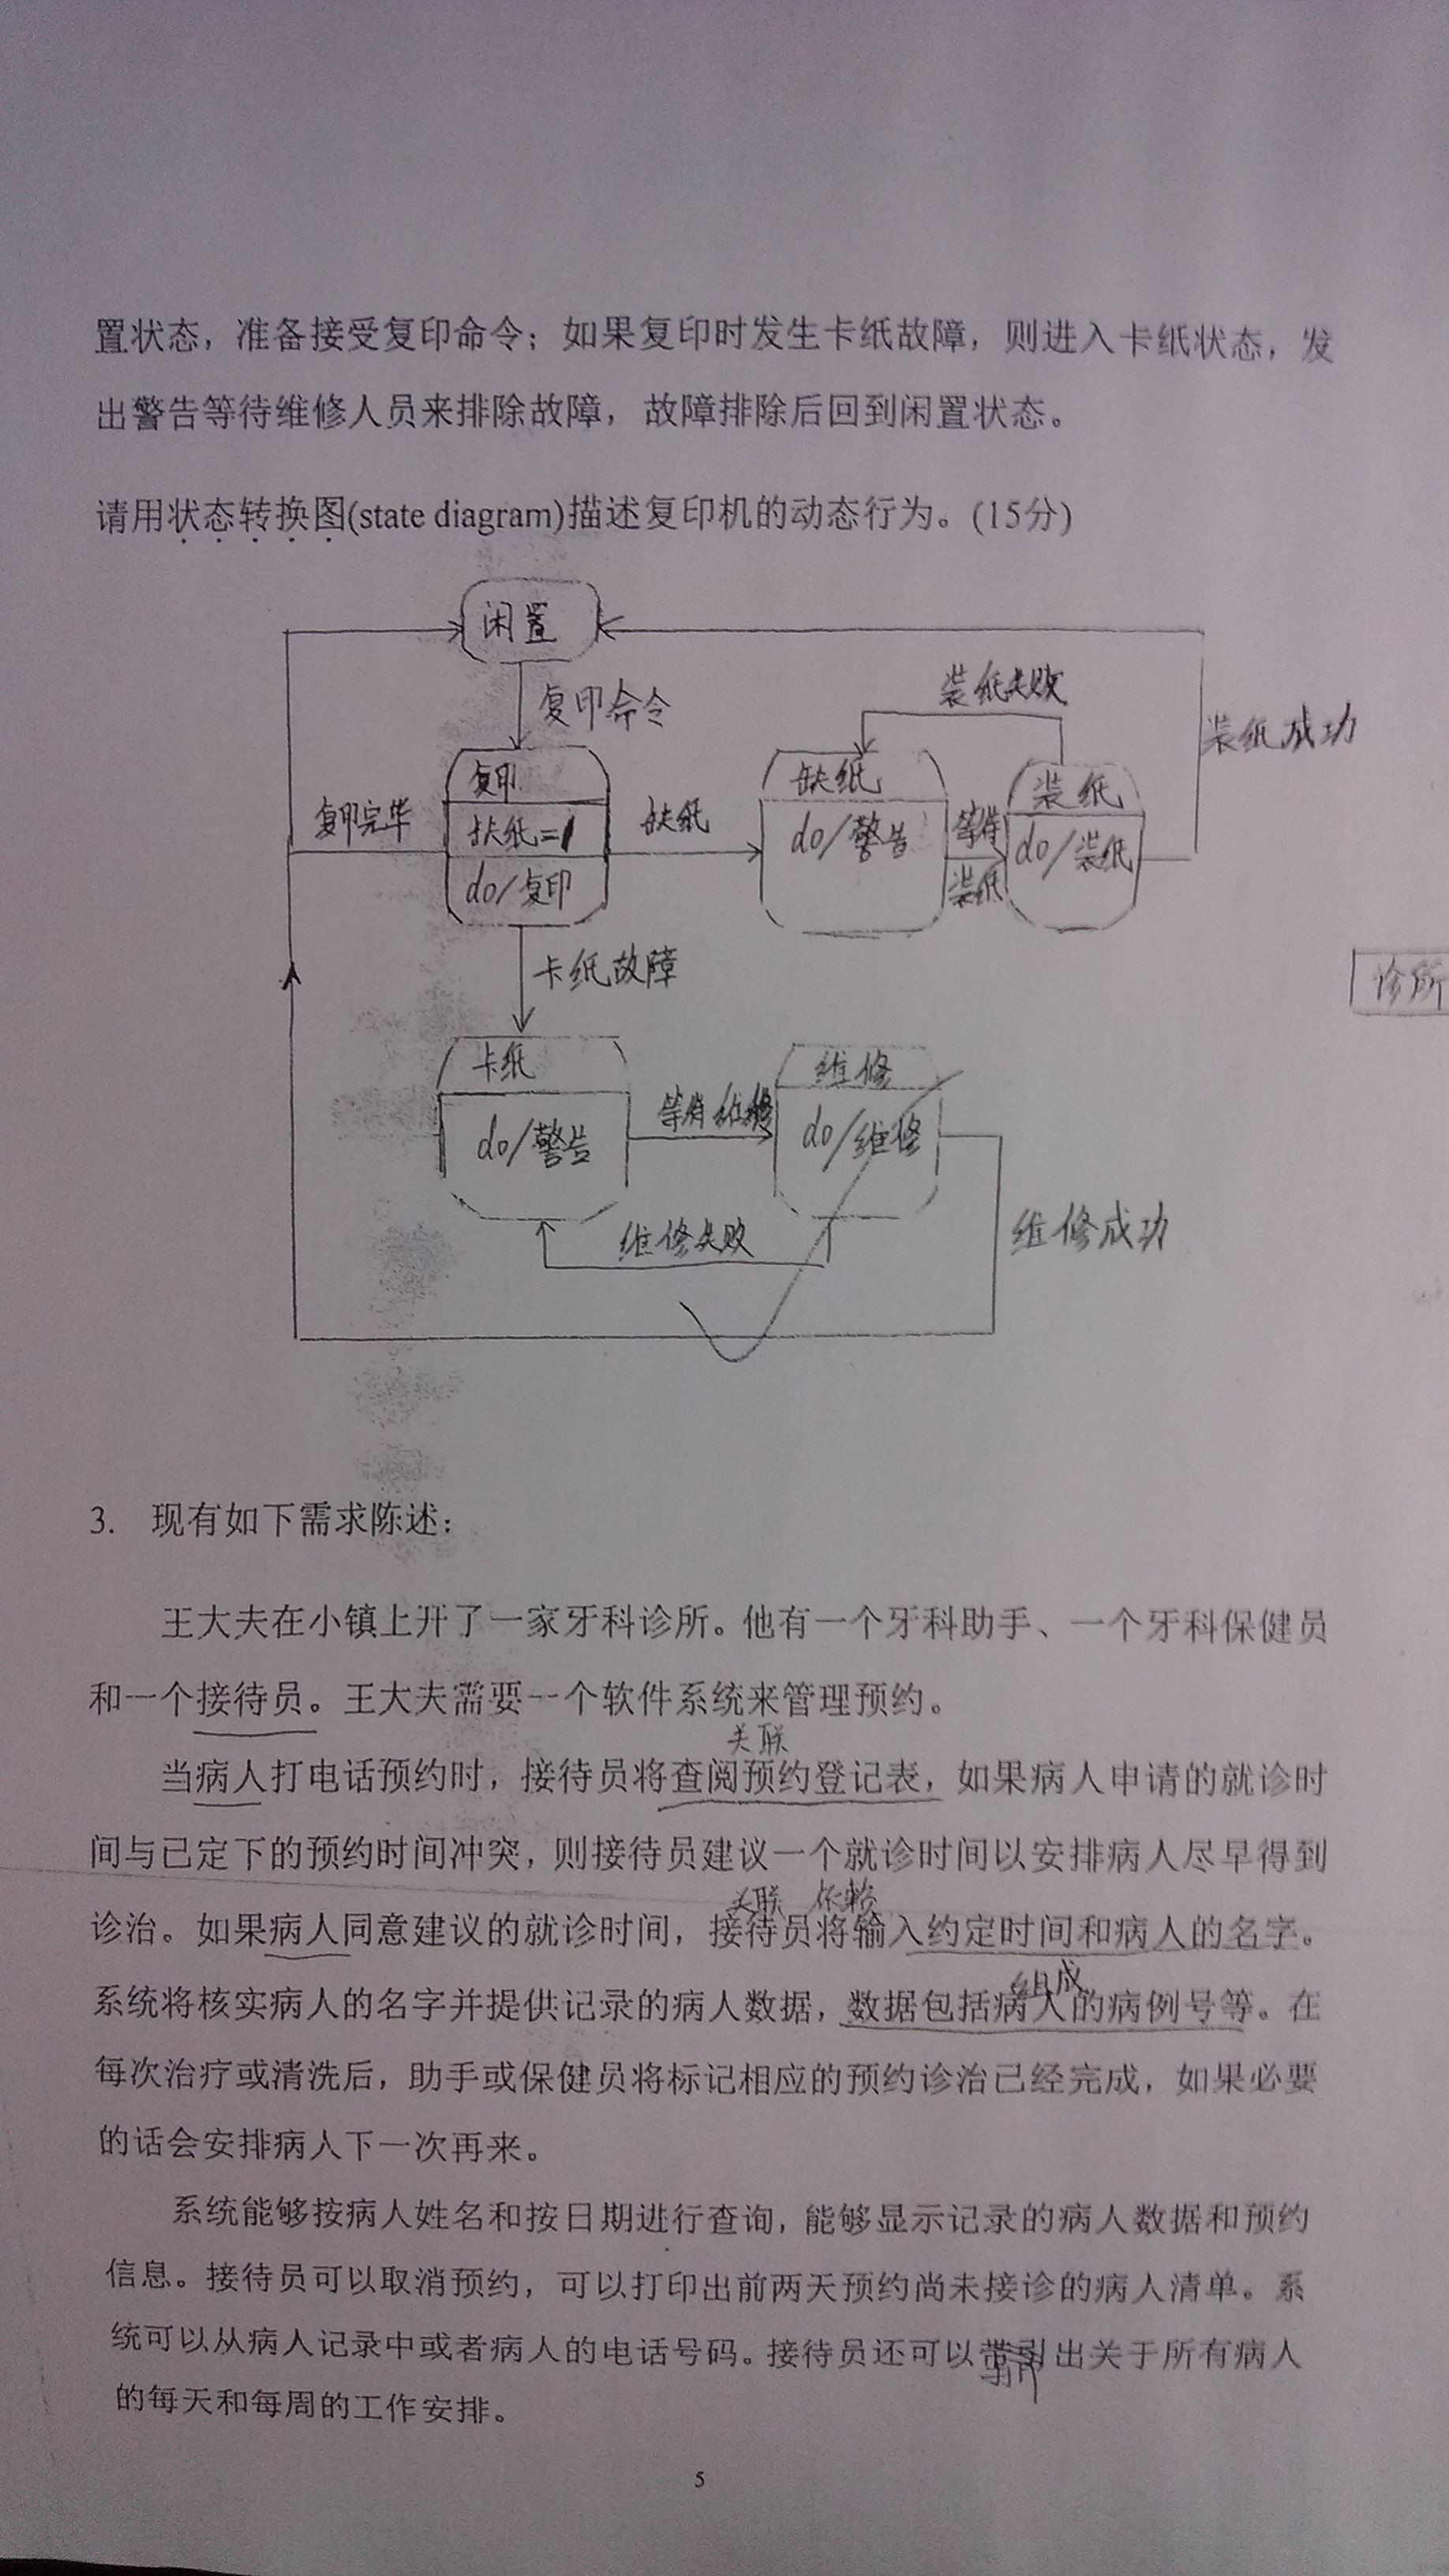 置状态，准备接受复印命令；如果复印时发生卡纸故障，则进入卡纸状态，发
出警告等待维修人员来排除故障，故障排除后回到闲置状态。
请用状态转换图(state diagram)描述复印机的动态行为。(15分)
闲置
装纸失败
复印命令
装纸成功
复印
缺纸
装纸
复印完毕
缺纸
等待
do/警告
do/装纸
do/复印
装纸
卡纸故障
诊所
卡纸
维修
等待维修
do/警告
do/维修
维修失败
维修成功
3. 现有如下需求陈述：
王大夫在小镇上开了一家牙科诊所。他有一个牙科助手、一个牙科保健员
和一个接待员。王大夫需要一个软件系统来管理预约。
关联
当病人打电话预约时，接待员将查阅预约登记表，如果病人申请的就诊时
间与已定下的预约时间冲突，则接待员建议一个就诊时间以安排病人尽早得到
关联 依赖
诊治。如果病人同意建议的就诊时间，接待员将输入约定时间和病人的名字。
组成
系统将核实病人的名字并提供记录的病人数据，数据包括病人的病例号等。在
每次治疗或清洗后，助手或保健员将标记相应的预约诊治已经完成，如果必要
的话会安排病人下一次再来。
系统能够按病人姓名和按日期进行查询，能够显示记录的病人数据和预约
信息。接待员可以取消预约，可以打印出前两天预约尚未接诊的病人清单。系
统可以从病人记录中或者病人的电话号码。接待员还可以出关于所有病人
的每天和每周的工作安排。
5